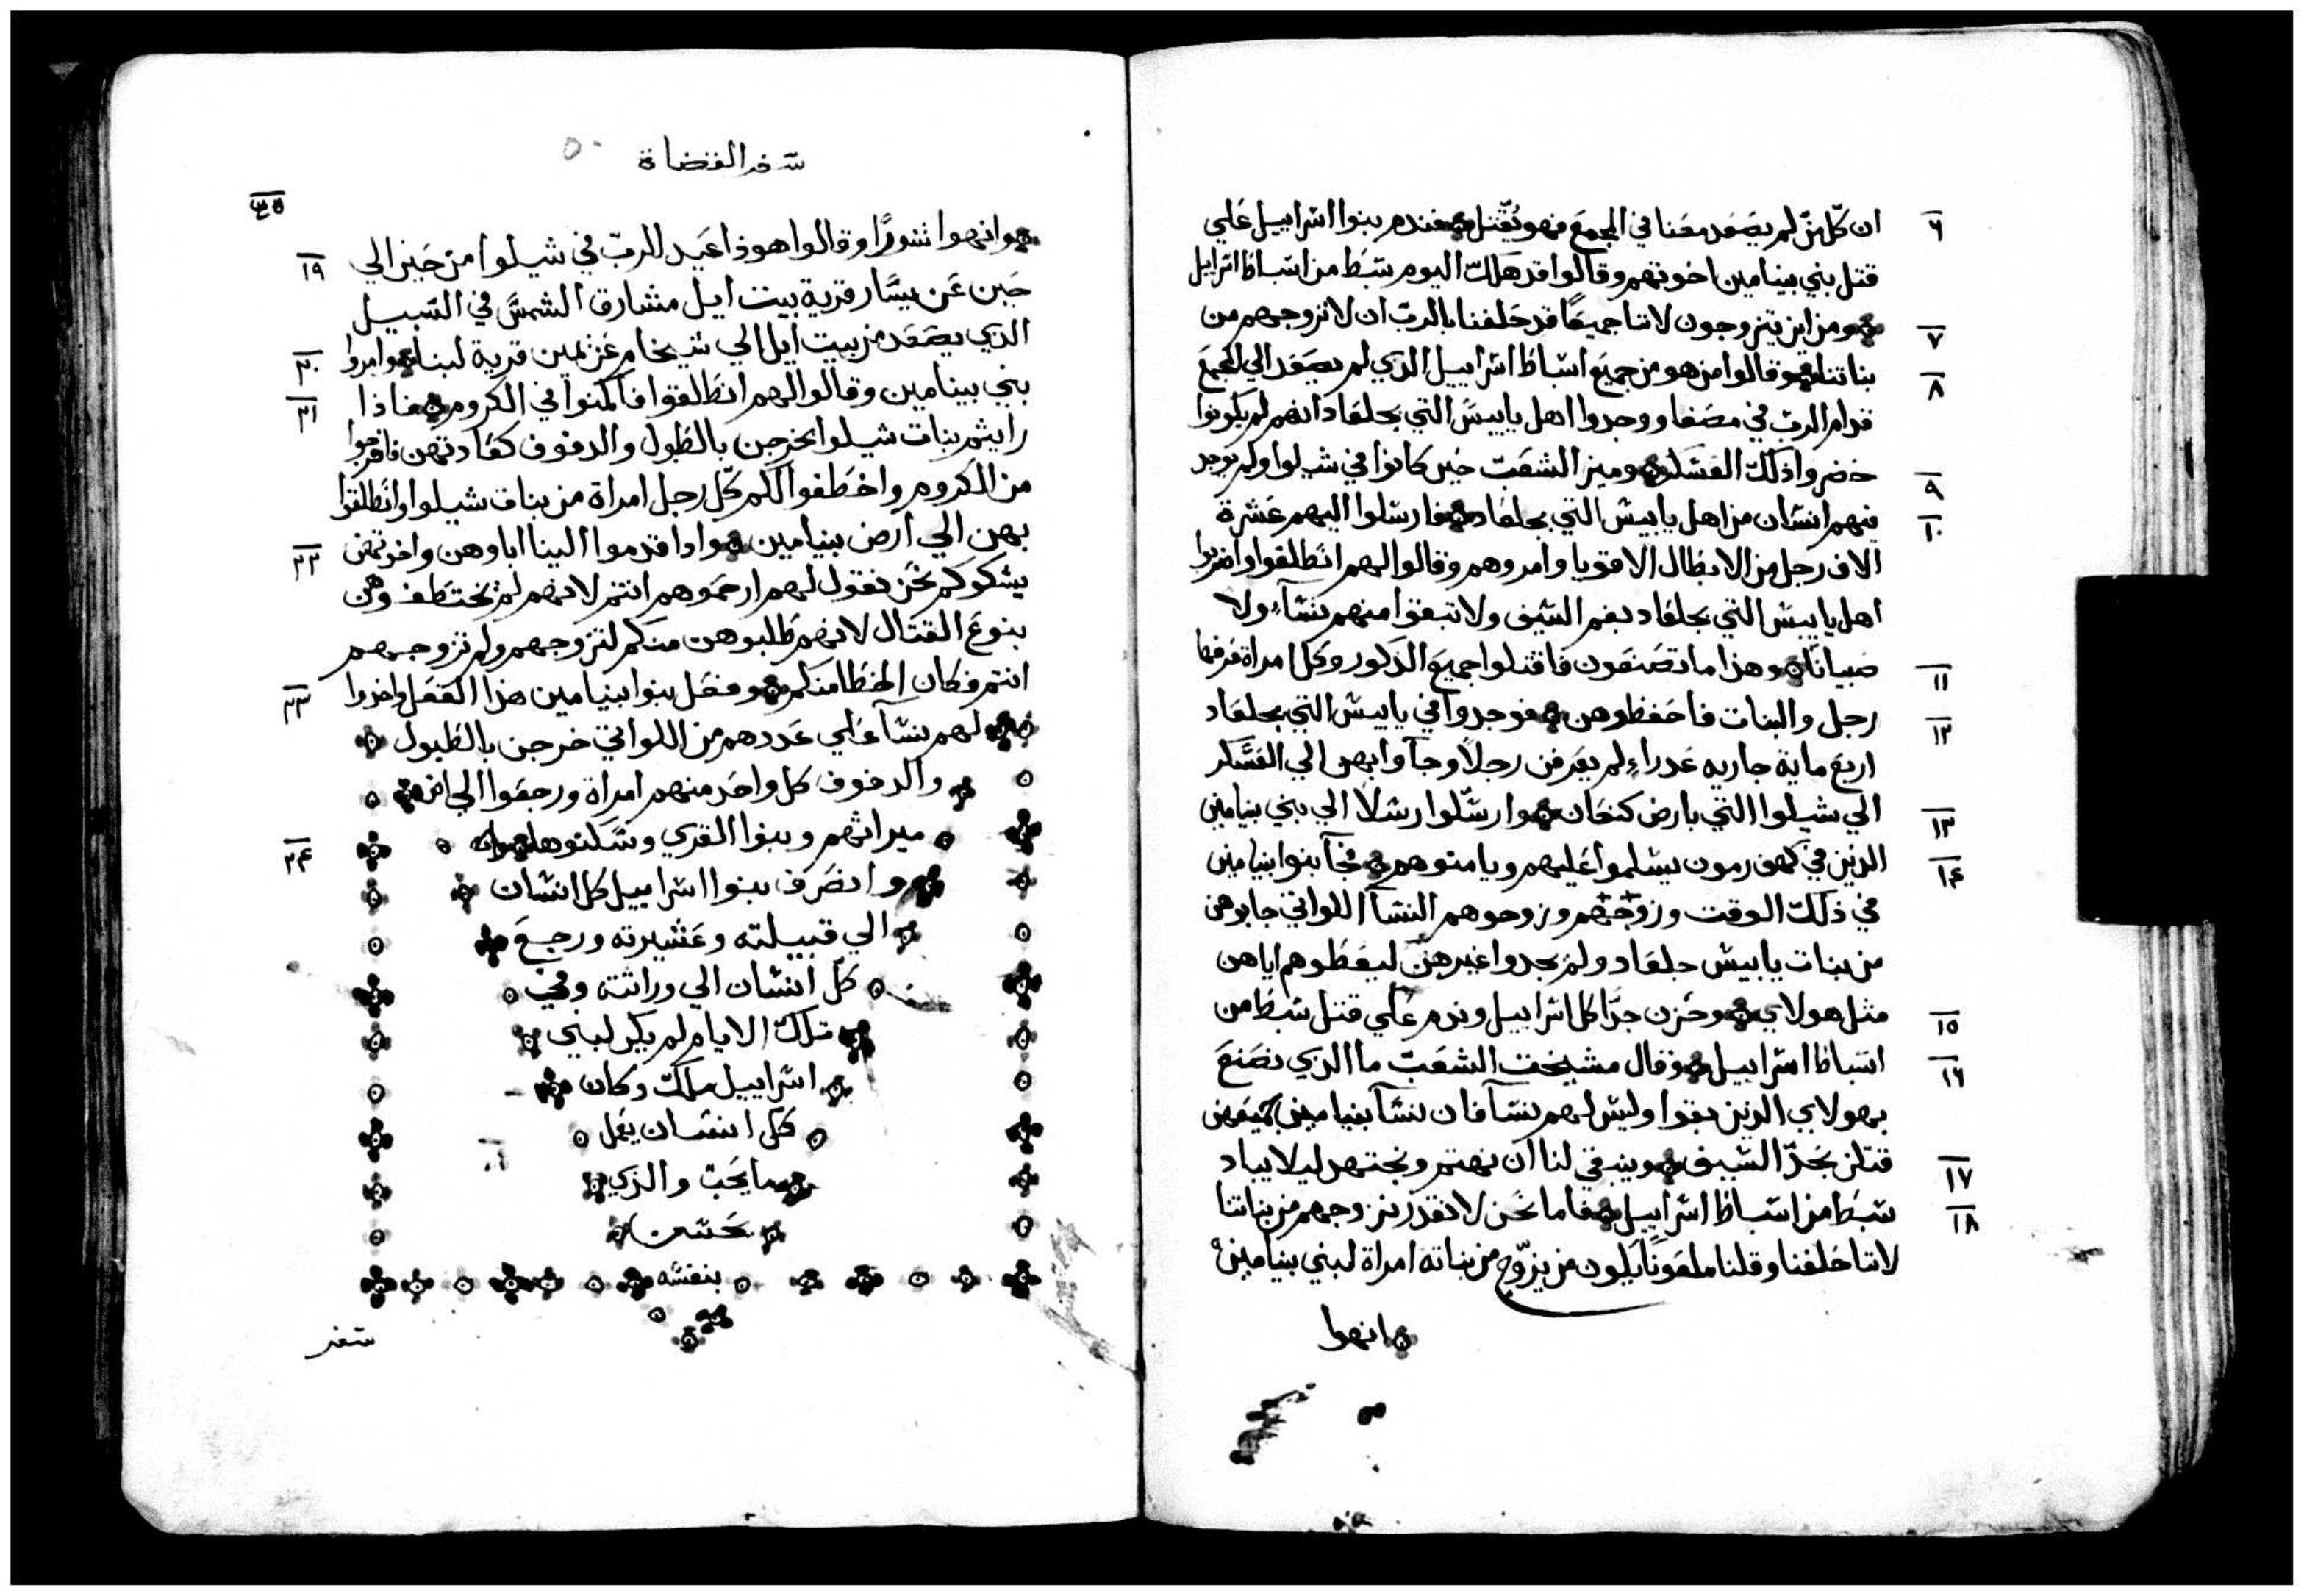 ٦ ان كلّ من لم يصعد معنا في المجمع فهو يُقتل فندم بنوا اسراييل علي
قتل بني بينامين اخوتهم وقالوا قد هلك اليوم سبط من اسباط اسراييل
٧ ومن اين يتزوجون لاننا جميعًا قد حلفنا بالرب ان لا نزوجهم من
٨ بناتنا وقالوا من هو من جميع اسباط اسراييل الذي لم يصعد الي المجمع
قدام الرب في مصفا ووجدوا اهل يابيس التي بجلعاد انهم لم يكونوا
٩ حضروا ذلك العسكر وميز الشعب حين كانوا في شيلوا ولم يوجد
١٠ فيهم انسان من اهل يابيس التي بجلعاد فارسلوا اليهم عشرة
الاف رجل من الابطال الاقويا وامروهم وقالوا لهم انطلقوا واضربوا
اهل يابيس التي بجلعاد بفم السيف ولا تبقوا منهم نسآء ولا
١١ صبيانًا وهذا ما تصنعون فاقتلوا جميع الذكور وكل امراة عرفها
١٢ رجل والبنات فاحفظوهن فوجدوا في يابيس التي بجلعاد
اربع ماية جاريه عدراء لم يعرفن رجلاً وجآوا بهن الي العسكر
١٣ الي شيلوا التي بارض كنعان وارسلوا رسلاً الي بني بنيامين
١٤ الذين في كهف رمون يسلموا عليهم ويامنوهم فجآ بنوا بنيامين
في ذلك الوقت وزوجهم وزوجوهم النسآ اللواتي جابوهن
من بنات يابيس جلعاد ولم يجدوا غيرهن ليعطوهم اياهن
١٥ مثل هولاي وحزن جدًا كل اسراييل وندم علي قتل سبط من
١٦ اسباط اسراييل وقال مشيخت الشعب ما الذي نصنع
بهولاي الذين بقوا وليس لهم نسآ فان نسآ بنيامين جميعهن
١٧ قتلن بحدّ السيف وينبغي لنا ان نهتم ونجتهد ليلا يباد
١٨ سبط من اسباط اسراييل فاما نحن لا نقدر نزوجهم من بناتنا
لاننا حلفنا وقلنا ملعونًا يكون من يزوّج من بناته امراة لبني بنيامين
وانهوا
سفر القضاة
٥٠
١٩ وانهوا شورًا وقالوا هوذا عيد للرب في شيلوا من حين الي
حين عن يسار قرية بيت ايل مشارق الشمس في السبيل
٢٠ الذي يصعد من بيت ايل الي شيخام عن يمين قرية لبنا وامروا
٢١ بني بينامين وقالوا لهم انطلقوا فاكمنوا في الكروم فاذا
رايتم بنات شيلوا يخرجن بالطبول والدفوف كعادتهن فاخرجوا
من الكروم واخطفوا لكم كل رجل امراة من بنات شيلوا وانطلقوا
٢٢ بهن الي ارض بنيامين واذا قدموا الينا اباوهن واخوتهن
يشكوكم نحن نقول لهم ارحموهم انتم لانهم لم يختطفوهن
بنوع القتال لانهم طلبوهن منكم لتزوجهم ولم تزوجهم
٢٣ انتم فكان الخطا منكم وفعل بنوا بنيامين هذا الفعل واخذوا
لهم نسآ علي عددهم من اللواتي خرجن بالطبول
والدفوف كل واحد منهم امراة ورجعوا الي ارض
ميراثهم وبنوا القري وسكنوها
٢٤ وانصرف بنوا اسراييل كل انسان
الي قبيلته وعشيرته ورجع
كل انسان الي وراثته وفي
تلك الايام لم يكن لبني
اسراييل ملك وكان
كل انسان يعمل
ما يحب والذي
يحسن
بنفسه
سفر